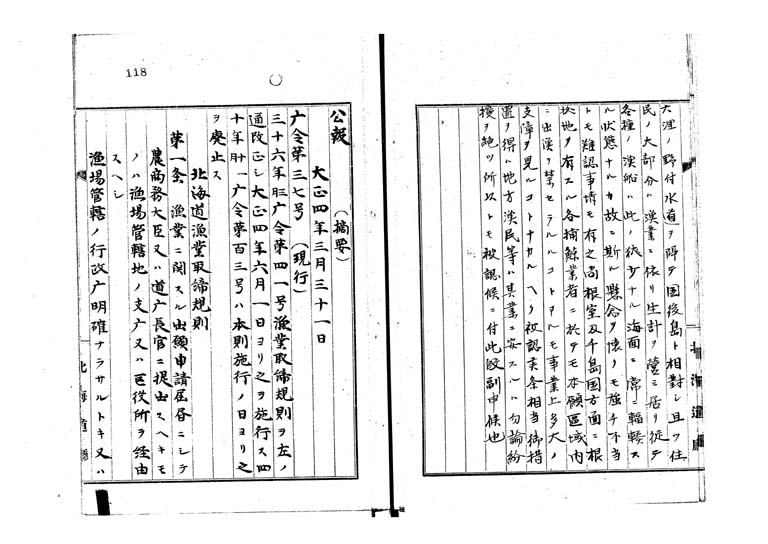 六浬ノ野付水道ヲ隔テ国後島ト相對シ且ツ住
民ノ大部分ハ漁業ニ依リ生計ヲ営ミ居リ従テ
各種ノ漁船ハ此ノ狭少ナル海面ニ常ニ輻輳ス
ル状態ナルカ故ニ斯ル懸念ヲ懐クモ強チ不当
トモ難認事情モ有之尚根室及千島国方面ニ根
拠地ヲ有スル各捕鯨業者ニ於テモ本願区域内
ニ出漁ヲ禁セラルルコトアルモ事業上多大ノ
支障ヲ見ルコトナカルヘク被認候条相当御措
置ヲ得ハ地方漁民等ハ其業ニ安スルハ勿論紛
擾ヲ絶ツ所以トモ被認候ニ付此段副申候也
118
公報 （摘要）
大正四年三月三十一日
广令第三七号 （現行）
三十六年 广令第四一号漁業取締規則ヲ左ノ
通改正シ大正四年六月一日ヨリ之ヲ施行ス四
十年 广令第百三号ハ本則施行ノ日ヨリ之
ヲ廃止ス
北海道漁業取締規則
第一条 漁業ニ関スル出願申請届書ニシテ
農商務大臣又ハ道广長官ニ提出スヘキモ
ノハ漁場管轄地ノ支广又ハ区役所ヲ経由
スヘシ
漁場管轄ノ行政广明確ナラサルトキ又ハ
北海道廳